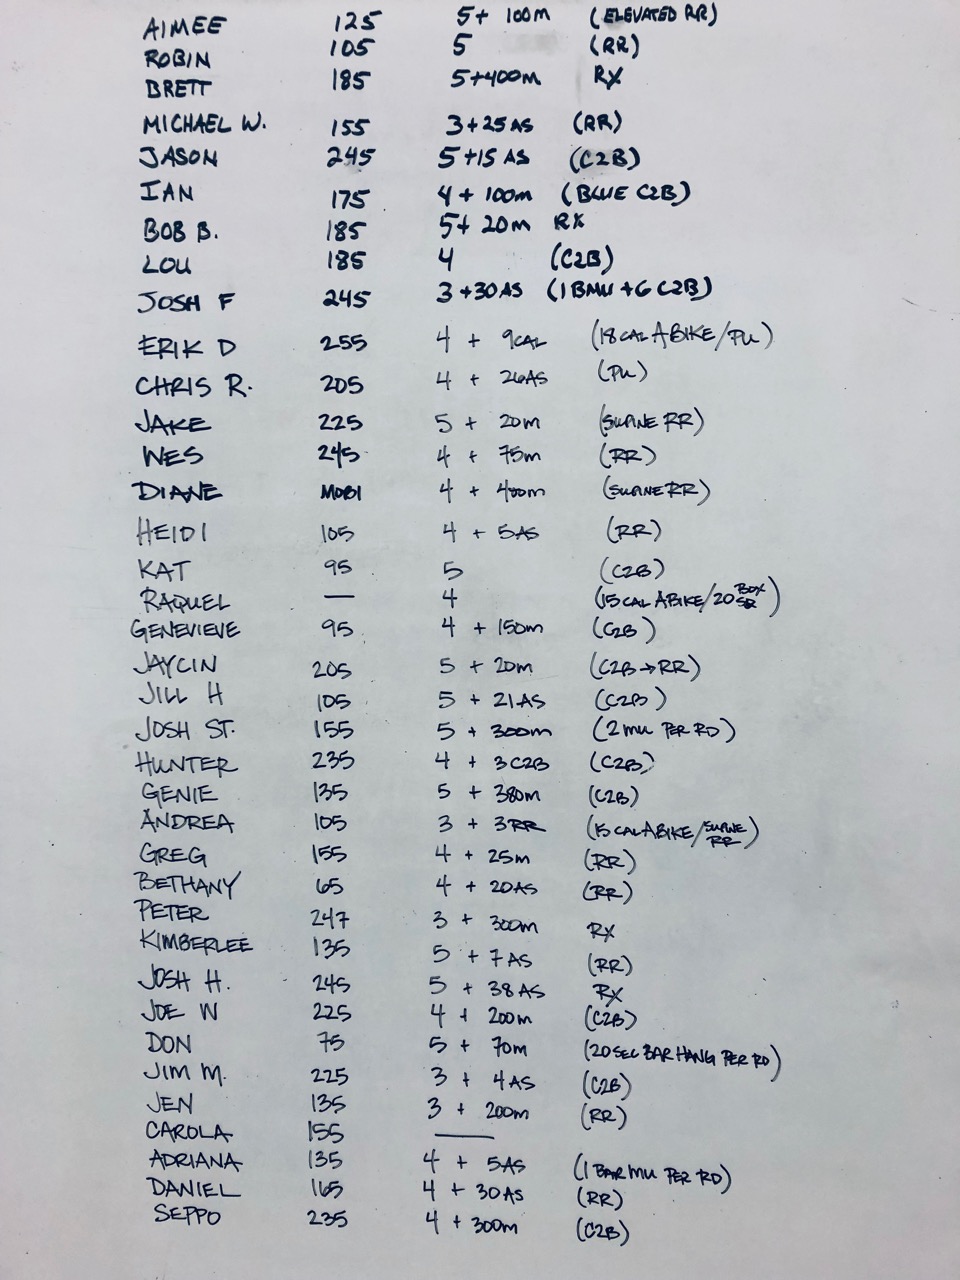 AIMEE 125 5+ 100m (ELEVATED RR)
ROBIN 105 5 (RR)
BRETT 185 5+400m RX
MICHAEL W. 155 3+25 AS (RR)
JASON 245 5+15 AS (C2B)
IAN 175 4 + 100m (BLUE C2B)
BOB B. 185 5+ 20m RX
LOU 185 4 (C2B)
JOSH F 245 3+30 AS (1 BMU + 6 C2B)
ERIK D 255 4 + 9CAL (18 CAL A BIKE/PU)
CHRIS R. 205 4 + 26AS (PU)
JAKE 225 5 + 20m (SUPINE RR)
WES 245 4 + 75m (RR)
DIANE MOBI 4 + 400m (SUPINE RR)
HEIDI 105 4 + 5AS (RR)
KAT 95 5 (C2B)
RAQUEL — 4 (15 CAL A BIKE/20 BOX SR)
GENEVIEVE 95 4 + 150m (C2B)
JAYCIN 205 5 + 20m (C2B→RR)
JILL H 105 5 + 21AS (C2B)
JOSH ST. 155 5 + 300m (2 MU PER RD)
HUNTER 235 4 + 3 C2B (C2B)
GENIE 135 5 + 380m (C2B)
ANDREA 105 3 + 3RR (15 CAL A BIKE/SUPINE RR)
GREG 155 4 + 25m (RR)
BETHANY 65 4 + 20AS (RR)
PETER 247 3 + 300m RX
KIMBERLEE 135 5 + 7 AS (RR)
JOSH H. 245 5 + 38 AS RX
JOE W 225 4 + 200m (C2B)
DON 75 5 + 70m (20 SEC BAR HANG PER RD)
JIM M. 225 3 + 4AS (C2B)
JEN 135 3 + 200m (RR)
CAROLA 155 —
ADRIANA 135 4 + 5AS (1 BAR MU PER RD)
DANIEL 165 4 + 30 AS (RR)
SEPPO 235 4 + 300m (C2B)